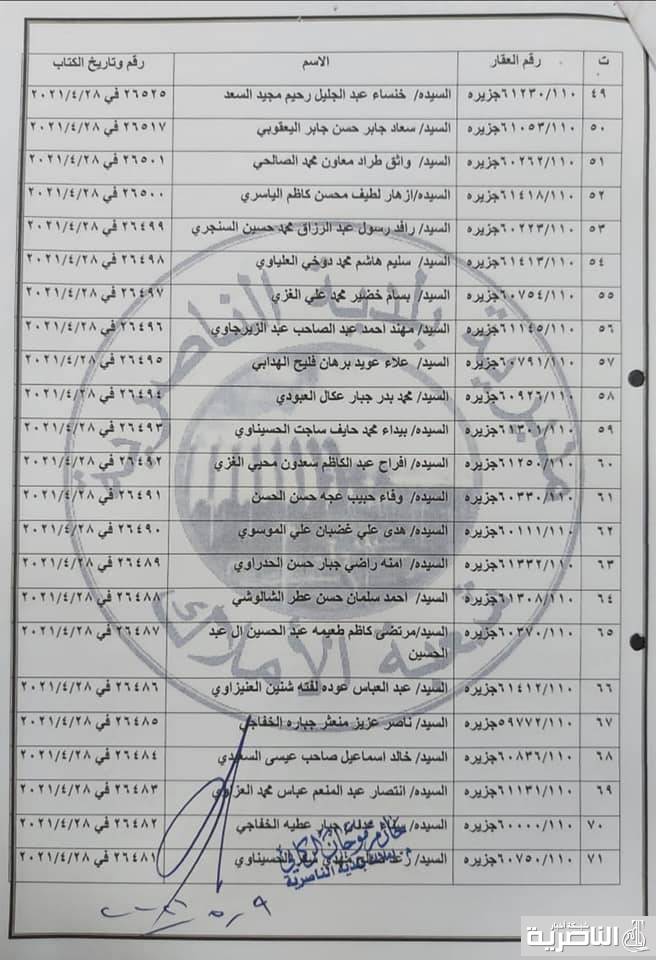 ت رقم العقار الاسم رقم وتاريخ الكتاب
٤٩ ٦١٢٣٠/١١٠جزيره السيده/ خنساء عبد الجليل رحيم مجيد السعد ٢٦٥٢٥ في ٢٠٢١/٤/٢٨
٥٠ ٦١٠٥٣/١١٠جزيره السيد/ سعاد جابر حسن جابر اليعقوبي ٢٦٥١٧ في ٢٠٢١/٤/٢٨
٥١ ٦٠٢٦٢/١١٠جزيره السيد/ واثق طراد معاون محمد الصالحي ٢٦٥٠١ في ٢٠٢١/٤/٢٨
٥٢ ٦١٤١٨/١١٠جزيره السيده/ازهار لطيف محسن كاظم الياسري ٢٦٥٠٠ في ٢٠٢١/٤/٢٨
٥٣ ٦٠٢٢٣/١١٠جزيره السيد/ رافد رسول عبد الرزاق محمد حسين السنجري ٢٦٤٩٩ في ٢٠٢١/٤/٢٨
٥٤ ٦١٤١٣/١١٠جزيره السيد/ سليم هاشم محمد دوخي العلياوي ٢٦٤٩٨ في ٢٠٢١/٤/٢٨
٥٥ ٦٠٧٥٤/١١٠جزيره السيد/ بسام خضير محمد علي الغزي ٢٦٤٩٧ في ٢٠٢١/٤/٢٨
٥٦ ٦١١٤٥/١١٠جزيره السيد/ مهند احمد عبد الصاحب عبد الزيرجاوي ٢٦٤٩٦ في ٢٠٢١/٤/٢٨
٥٧ ٦٠٧٩١/١١٠جزيره السيد/ علاء عويد برهان فليح الهدابي ٢٦٤٩٥ في ٢٠٢١/٤/٢٨
٥٨ ٦٠٩٢٦/١١٠جزيره السيد/ محمد بدر جبار عكال العبودي ٢٦٤٩٤ في ٢٠٢١/٤/٢٨
٥٩ ٦١٣٠١/١١٠جزيره السيده/ بيداء محمد حايف ساجت الحسيناوي ٢٦٤٩٣ في ٢٠٢١/٤/٢٨
٦٠ ٦١٢٥٠/١١٠جزيره السيده/ افراح عبد الكاظم سعدون محيي الغزي ٢٦٤٩٢ في ٢٠٢١/٤/٢٨
٦١ ٦٠٣٣٠/١١٠جزيره السيده/ وفاء حبيب عجه حسن الحسن ٢٦٤٩١ في ٢٠٢١/٤/٢٨
٦٢ ٦٠١١١/١١٠جزيره السيده/ هدى علي غضبان علي الموسوي ٢٦٤٩٠ في ٢٠٢١/٤/٢٨
٦٣ ٦١٣٣٢/١١٠جزيره السيده/ امنه راضي جبار حسن الحدراوي ٢٦٤٨٩ في ٢٠٢١/٤/٢٨
٦٤ ٦١٣٠٨/١١٠جزيره السيد/ احمد سلمان حسن عطر الشالوشي ٢٦٤٨٨ في ٢٠٢١/٤/٢٨
٦٥ ٦٠٣٧٠/١١٠جزيره السيد/مرتضى كاظم طعيمه عبد الحسين ال عبد ٢٦٤٨٧ في ٢٠٢١/٤/٢٨
الحسين
٦٦ ٦١٤١٢/١١٠جزيره السيد/ عبد العباس عوده لفته شنين العنيزاوي ٢٦٤٨٦ في ٢٠٢١/٤/٢٨
٦٧ ٥٩٧٧٢/١١٠جزيره السيد/ ناصر عزيز منعثر جباره الخفاجي ٢٦٤٨٥ في ٢٠٢١/٤/٢٨
٦٨ ٦٠٨٣٦/١١٠جزيره السيد/ خالد اسماعيل صاحب عيسى السعيدي ٢٦٤٨٤ في ٢٠٢١/٤/٢٨
٦٩ ٦١١٣١/١١٠جزيره السيده/ انتصار عبد المنعم عباس محمد العزاوي ٢٦٤٨٣ في ٢٠٢١/٤/٢٨
٧٠ ٦٠٠٠٠/١١٠جزيره السيده/ جبار عطيه الخفاجي ٢٦٤٨٢ في ٢٠٢١/٤/٢٨
٧١ ٦٠٧٥٠/١١٠جزيره السيد/ الحسيناوي ٢٦٤٨١ في ٢٠٢١/٤/٢٨
مديرية بلدية الناصرية
شعبة الأملاك
بلدية الناصرية
شبكة اخبار
الناصرية